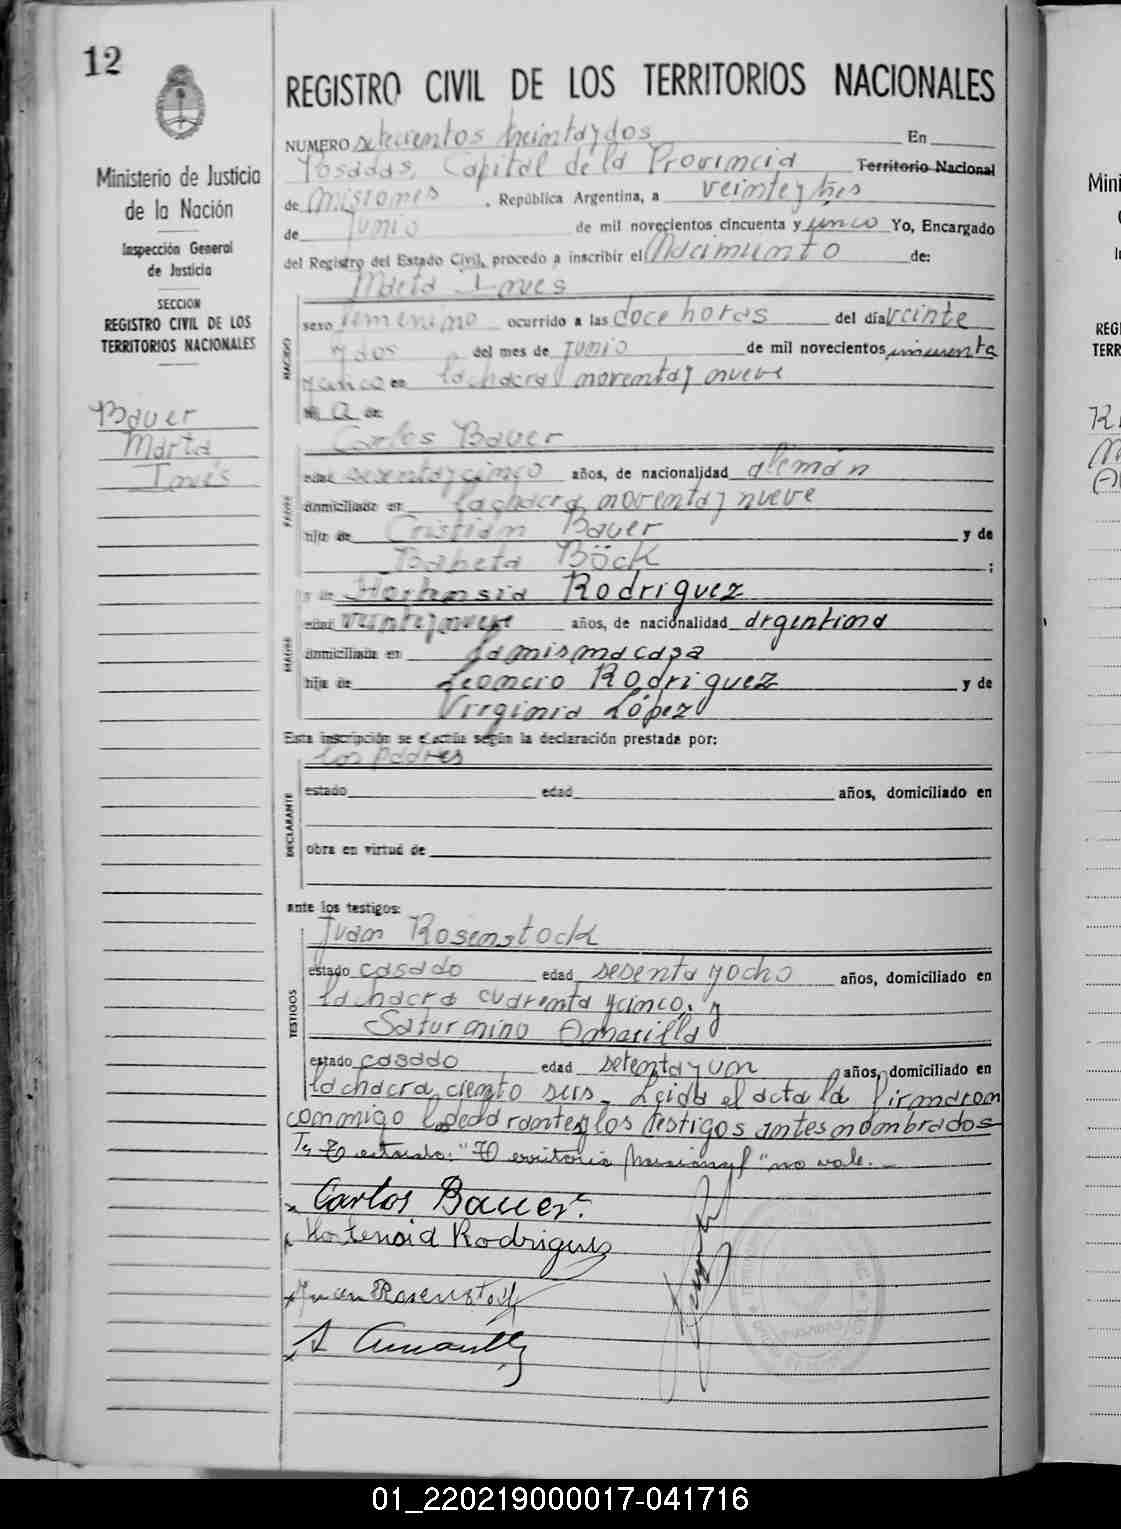 12
Ministerio de Justicia
de la Nación
Inspección General
de Justicia
SECCION
REGISTRO CIVIL DE LOS
TERRITORIOS NACIONALES
Bauer
Marta
Inés
REGISTRO CIVIL DE LOS TERRITORIOS NACIONALES
NUMERO setecientos treinta y dos En
Posadas, Capital de la Provincia Territorio Nacional
de Misiones, República Argentina, a veinte y tres
de Junio de mil novecientos cincuenta y unco Yo, Encargado
del Registro del Estado Civil, procedo a inscribir el Nacimiento de:
Marta Ines
NACIDO
sexo femenino ocurrido a las doce horas del día veinte
y dos del mes de junio de mil novecientos cincuenta
y unco en la chacra noventa y nueve
Carlos Bauer
PADRE
edad sesenta y cinco años, de nacionalidad alemán
domiciliado en la chacra noventa y nueve
hijo de Cristian Bauer y de
Babeta Böck ;
y de Hortensia Rodriguez
MADRE
edad veinte y nueve años, de nacionalidad argentina
domiciliada en la misma casa
hija de Leoncio Rodriguez y de
Virginia López
Esta inscripción se efectúa según la declaración prestada por:
los padres
DECLARANTE
estado edad años, domiciliado en
obra en virtud de
ante los testigos:
Juan Rosenstock
TESTIGOS
estado casado edad sesenta y ocho años, domiciliado en
la chacra cuarenta y cinco, y
Saturnino Amarilla
estado casado edad setenta y un años, domiciliado en
la chacra ciento seis. Leida el acta la firmaron
conmigo los testigos antes nombrados
"Territorio Nacional" no vale.
x Carlos Bauer.
x Hortensia Rodriguez
x Juan Rosenstock
x S Amarilla
Mini
REG
TERR
01_220219000017-041716